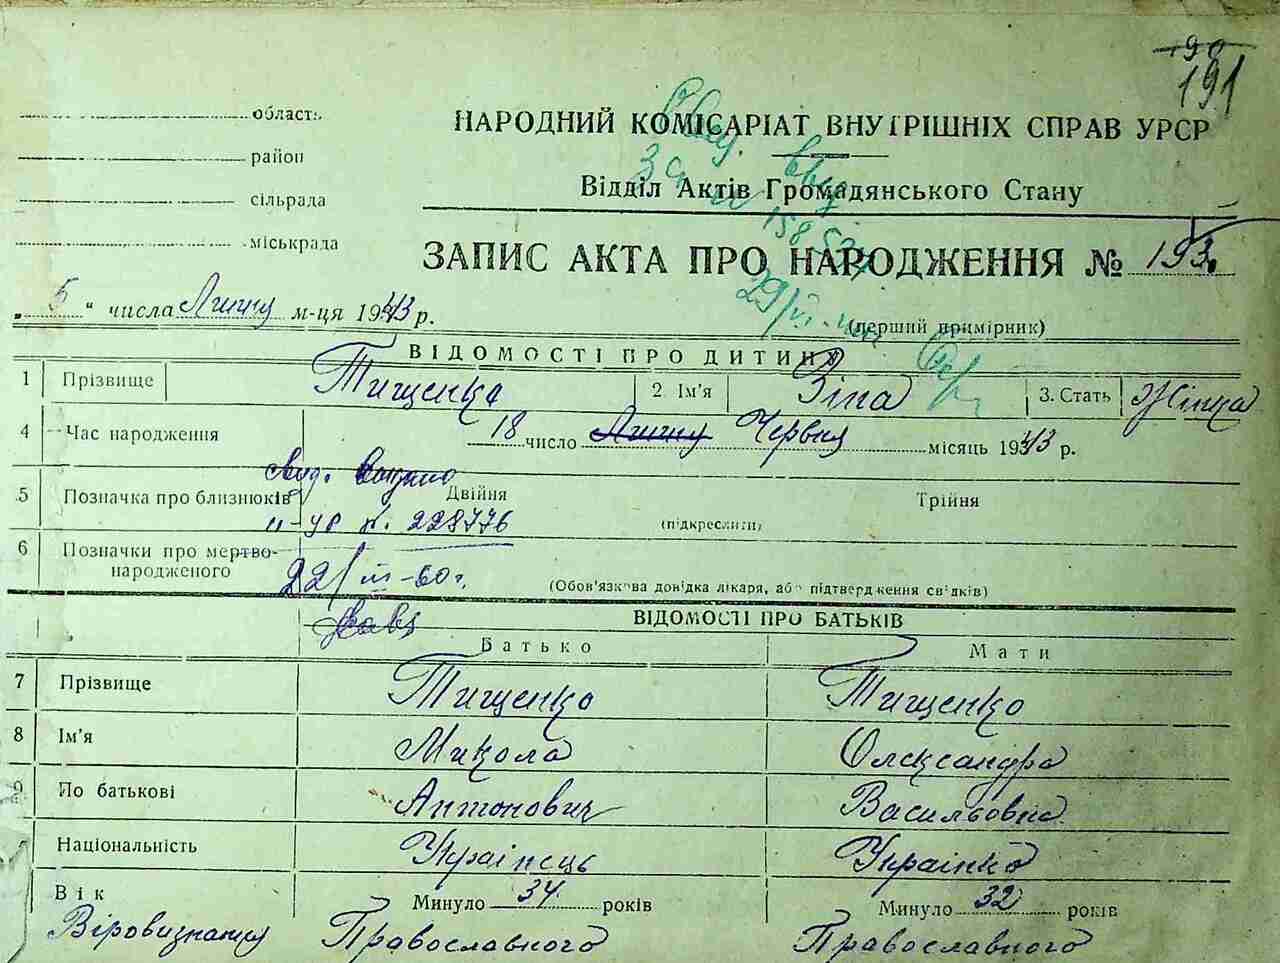 190
191
область
район
сільрада
міськрада
НАРОДНИЙ КОМІСАРІАТ ВНУТРІШНІХ СПРАВ УРСР
Відділ Актів Громадянського Стану
ЗАПИС АКТА ПРО НАРОДЖЕННЯ № 193.
„ 5 " числа Липню м-ця 1943 р.
(перший примірник)
158
29/VI
ВІДОМОСТІ ПРО ДИТИНУ
1 Прізвище Тищенко 2. Ім'я Зіна 3. Стать Жінка
4 Час народження 18 число Липню Червня місяць 1943 р.
5 Позначка про близнюків Двійня Трійня
(підкреслити)
II-УР № 228776
6 Позначки про мертво-
народженого
22/III-60 г.
(Обов'язкова довідка лікаря, або підтвердження свідків)
ВІДОМОСТІ ПРО БАТЬКІВ
Батько Мати
7 Прізвище Тищенко Тищенко
8 Ім'я Микола Олександра
9 По батькові Антонович Васильовна
Національність Українець Українка
Вік Минуло 34 років Минуло 32 років
Віровизнання Православного Православного